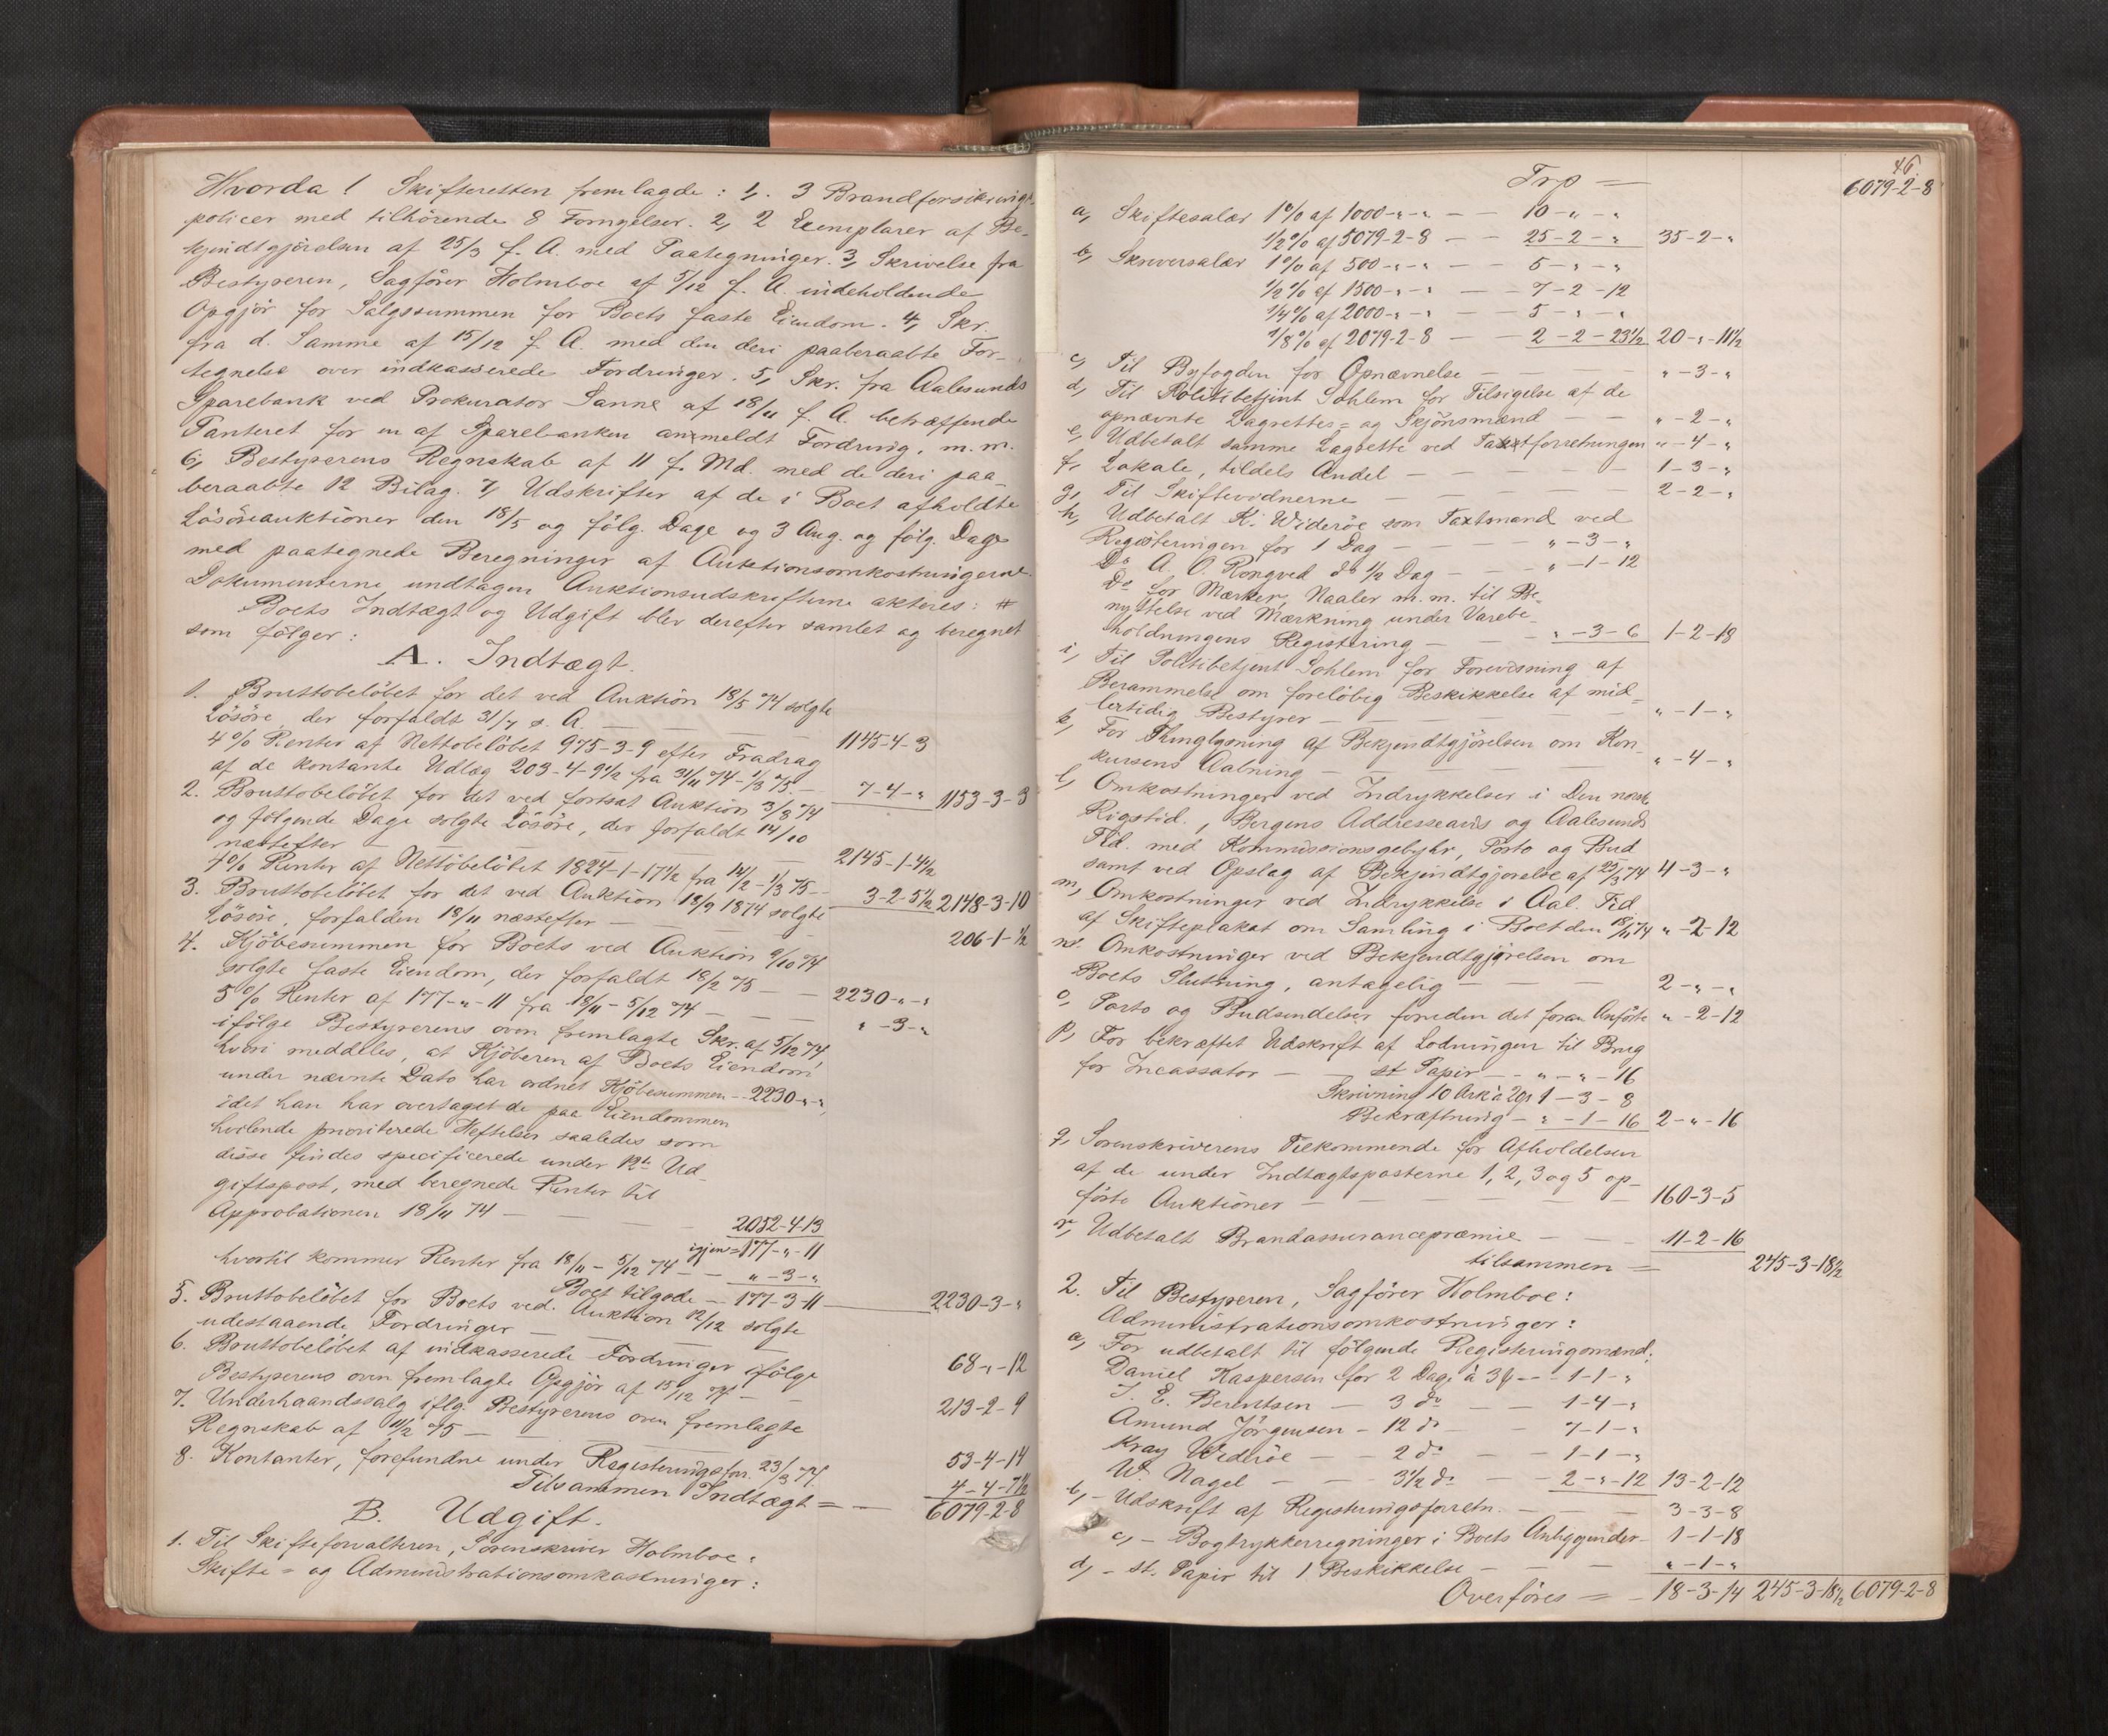 Hvorda! Skifteretten fremlagde: 1, 3 Brandforsikrings-
policer med tilhörende 8 Fornyelser. 2, 2 Exemplarer af Be-
kjendtgjörelsen af 25/3 f. A. med Paategninger. 3, Skrivelse fra
Bestyreren, Sagförer Holmboe af 5/12 f. A. indeholdende
Opgjör for Salgssummen for Boets faste Eiendom. 4, Skr.
fra d. Samme af 15/12 f. A. med den deri paaberaabte For-
tegnelse over indkasserede Fordringer. 5, Skr. fra Aalesunds
Sparebank ved Prokurator Sanne af 18/11 f. A. betræffende
Panteret for en af Sparebanken anmeldt Fordring, m. m.
6, Bestyrerens Regnskab af 11 f. Md. med de deri paa-
beraabte 12 Bilag. 7, Udskrifter af de i Boet afholdte
Lösöreauktioner den 18/5 og fölg. Dage og 3 Aug. og fölg. Dage
med paategnede Beregninger af Auktionsomkostningerne.
Dokumenterne undtagen Auktionsudskrifterne akteres: #
Boets Indtægt og Udgift blev derefter samlet og beregnet
som fölger:
A. Indtægt.
1. Bruttobelöbet for det ved Auktion 18/5 74 solgte
Lösöre, der forfaldt 31/7 s. A. — 1145-4-3
4% Renter af Nettobelöbet 975-3-9 efter Fradrag
af de kontante Udlæg 203-4-9 1/2 fra 31/11 74 - 1/3 75. — 7-4-„ 1153-3-3
2. Bruttobelöbet for det ved fortsat Auktion 3/8 74
og fölgende Dage solgte Lösöre, der forfaldt 14/10
næstefter — 2145-1-4 1/2
4% Renter af Nettobelöbet 1824-1-17 1/2 fra 14/2 - 1/3 75 — 3-2-5 1/2 2148-3-10
3. Bruttobelöbet for det ved Auktion 18/9 1874 solgte
Lösöre, forfalden 18/11 næstefter — 206-1-1/2
4. Kjöbesummen for Boets ved Auktion 9/10 74
solgte faste Eiendom, der forfaldt 18/2 75 — 2230-„-„
5% Renter af 177-„-11 fra 18/11 - 5/12 74 — „-3-„
ifölge Bestyrerens oven fremlagte Skr. af 5/12 74,
hvori meddeles, at Kjöberen af Boets Eiendom
under nævnte Dato har ordnet Kjöbesummen - 2230-„-„,
idet han har overtaget de paa Eiendommen
hvilende prioriterede Heftelser saaledes som
disse findes specificerede under 12te Ud-
giftspost, med beregnede Renter til
Approbationen 18/11 74 — 2052-4-13
igjen = 177-„-11
hvortil kommer Renter fra 18/11 - 5/12 74 — „-3-„
Boet tilgode — 177-3-11 — 2230-3-„
5. Bruttobelöbet for Boets ved Auktion 12/12 solgte
udestaaende Fordringer — 68-„-12
6. Bruttobelöbet af indkasserede Fordringer ifölge
Bestyrerens oven fremlagte Opgjör af 15/12 74 — 213-2-9
7. Underhaandssalg iflg. Bestyrerens oven fremlagte
Regnskab af 11/2 75 — 53-4-14
8. Kontanter, forefundne under Registeringsforr. 23/3 74 4-4-7 1/2
Tilsammen Indtægt = — 6079-2-8
B. Udgift.
1. Til Skifteforvalteren, Sorenskriver Holmboe:
Skifte- og Administrationsomkostninger:
46.
Trp = 6079-2-8
a, Skiftesalær 1% af 1000-„-„ — 10-„-„
1/2% af 5079-2-8 — 25-2-„ 35-2-„
b, Skriversalær 1% af 500-„-„ — 5-„-„
1/2% af 1500-„-„ — 7-2-12
1/4% af 2000-„-„ — 5-„-„
1/8% af 2079-2-8 — 2-2-23 1/2 20-„-11 1/2
c, Til Byfogden for Opnævnelse — „-3-„
d, Til Politibetjent Sohlem for Tilsigelse af de
opnævnte Lagrettes- og Skjönsmænd — „-2-„
e, Udbetalt samme Lagrette ved Taxtforretningen „-4-„
f, Lokale, tildels Andel — 1-3-„
g, Til Skiftevidnerne — 2-2-„
h, Udbetalt K. Wideröe som Taxtmand ved
Registeringen for 1 Dag — „-3-„
Do A. O. Rongved do 1/2 Dag — „-1-12
Do for Mærker, Naaler m.m. til Be-
nyttelse ved Mærkning under Varebe-
holdningens Registering — „-3-6 1-2-18
i, Til Politibetjent Sohlem for Forevisning af
Berammelse om foreløbig Beskikkelse af mid-
lertidig Bestyrer — „-1-„
k, For Thinglysning af Bekjendtgjörelsen om Kon-
kursens Aabning — „-4-„
l, Omkostninger ved Indrykkelser i Den norske
Rigstid., Bergens Addresseavis og Aalesunds
Tid. med Kommissionsgebyhr, Porto og Bud
samt ved Opslag af Bekjendtgjörelse af 25/3 74 4-3-„
m, Omkostninger ved Indrykkelse i Aal. Tid.
af Skifteplakat om Samling i Boet den 18/11 74 „-2-12
n, Omkostninger ved Bekjendtgjörelsen om
Boets Slutning, antagelig — 2-„-„
o, Porto og Budsendelser foruden det foran Anförte „-2-12
p, For bekræftet Udskrift af Lodningen til Brug
for Incassator — st. Papir — „-„-16
Skrivning 10 Ark à 20s 1-3-8
Bekræftning — „-1-16 2-„-16
q, Sorenskriverens Tilkommende for Afholdelsen
af de under Indtægtsposterne 1, 2, 3 og 5 op-
förte Auktioner — 160-3-5
r, Udbetalt Brandassurancepræmie — 11-2-16
tilsammen = 245-3-18 1/2
2. Til Bestyreren, Sagförer Holmboe:
Administrationsomkostninger:
a, For udbetalt til fölgende Registeringsmænd:
Daniel Kaspersen for 2 Dage à 3 ƒ — 1-1-„
J. E. Berentsen — 3 do — 1-4-„
Amund Jörgensen — 12 do 7-1-„
Kray Wideröe — 2 do — 1-1-„
W. Nagel — 3 1/2 do — 2-„-12 13-2-12
b, - Udskrift af Registeringsforretn. — 3-3-8
c, - Bogtrykkerregninger i Boets Anliggender 1-1-18
d, - st. Papir til 1 Beskikkelse — „-1-„
Overföres = 18-3-14 245-3-18 1/2 6079-2-8